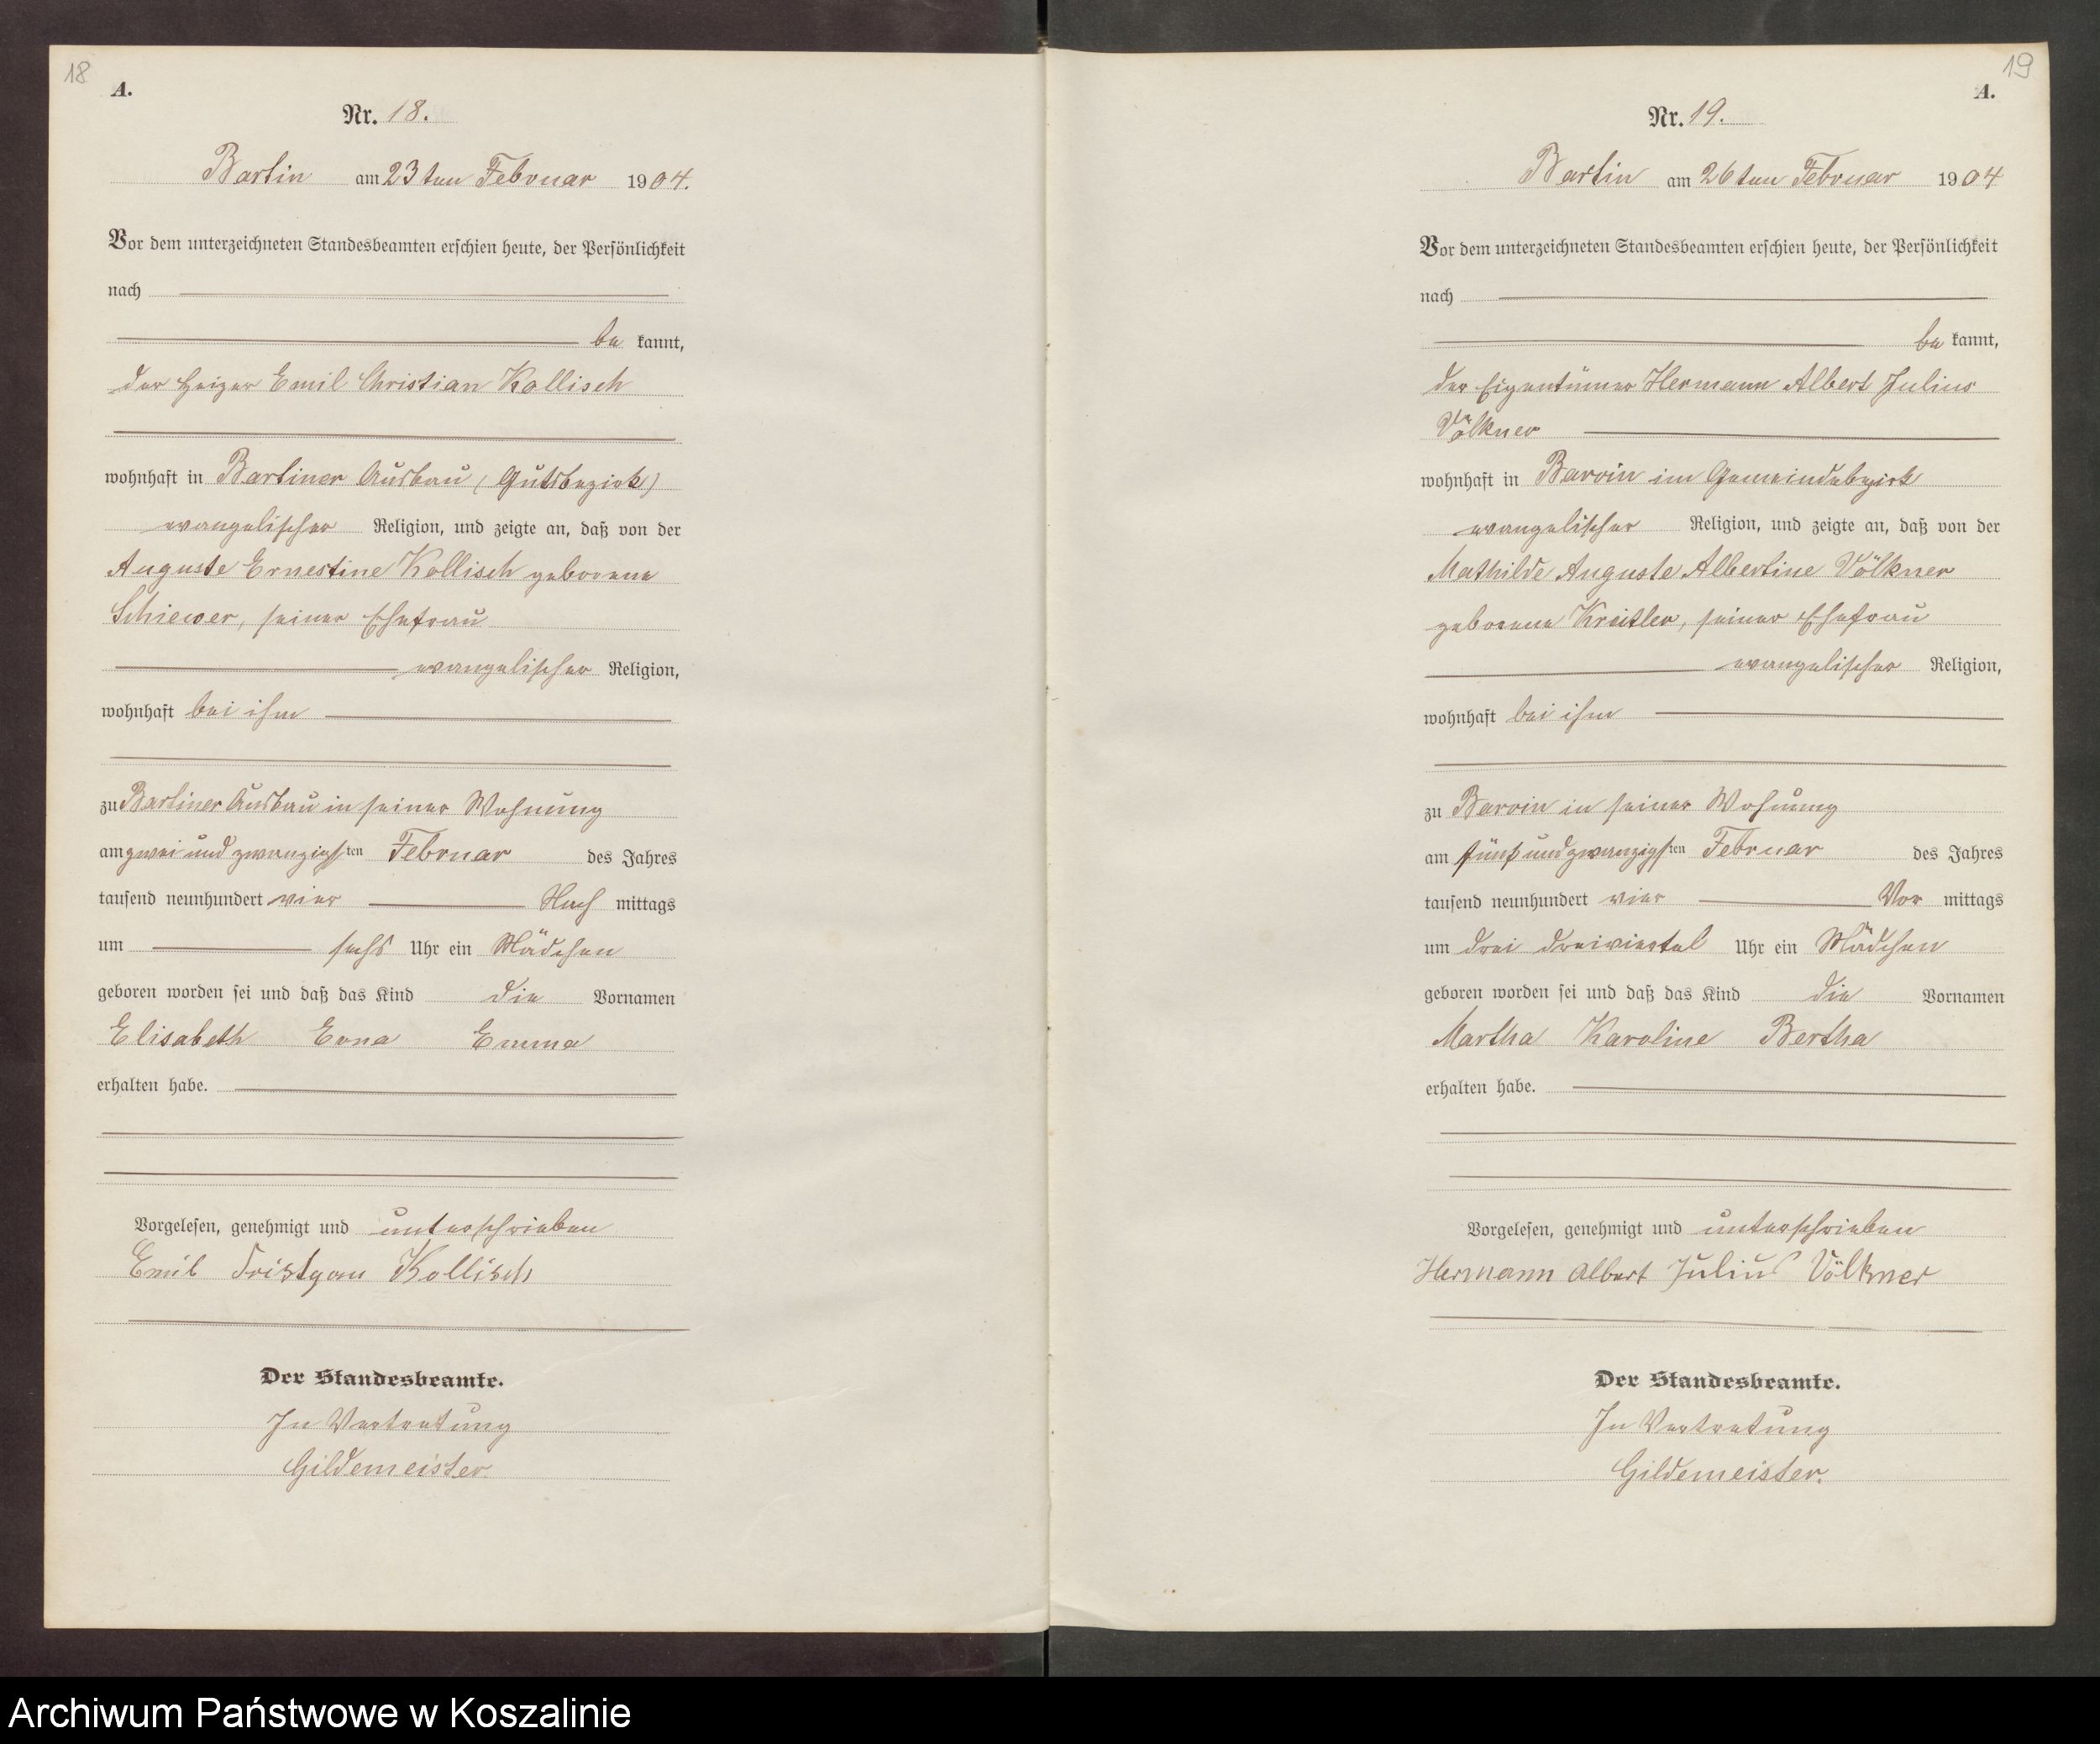 18
A.
Nr. 18.
Bartin am 23ten Februar 1904.
Vor dem unterzeichneten Standesbeamten erschien heute, der Persönlichkeit
nach
be kannt,
der Heizer Emil Christian Kollisch
wohnhaft in Bartiner Ausbau (Gutsbezirk)
evangelischer Religion, und zeigte an, daß von der
Auguste Ernestine Kollisch geborene
Schiewer, seiner Ehefrau
evangelischer Religion,
wohnhaft bei ihm
zu Bartiner Ausbau in seiner Wohnung
am zwei und zwanzigsten Februar des Jahres
tausend neunhundert vier Nach mittags
um sechs Uhr ein Mädchen
geboren worden sei und daß das Kind die Vornamen
Elisabeth Erna Emma
erhalten habe.
Vorgelesen, genehmigt und unterschrieben
Emil Kollisch
Der Standesbeamte.
In Vertretung
Gildemeister.
19
A.
Nr. 19.
Bartin am 26ten Februar 1904
Vor dem unterzeichneten Standesbeamten erschien heute, der Persönlichkeit
nach
be kannt,
der Eigentümer Hermann Albert Julius
Völkner
wohnhaft in Barvin im Gemeindebezirk
evangelischer Religion, und zeigte an, daß von der
Mathilde Auguste Albertine Völkner
geborene Kreitler, seiner Ehefrau
evangelischer Religion,
wohnhaft bei ihm
zu Barvin in seiner Wohnung
am fünf und zwanzigsten Februar des Jahres
tausend neunhundert vier Vor mittags
um drei dreiviertel Uhr ein Mädchen
geboren worden sei und daß das Kind die Vornamen
Martha Karoline Bertha
erhalten habe.
Vorgelesen, genehmigt und unterschrieben
Hermann Albert Julius Völkner
Der Standesbeamte.
In Vertretung
Gildemeister.
Archiwum Państwowe w Koszalinie